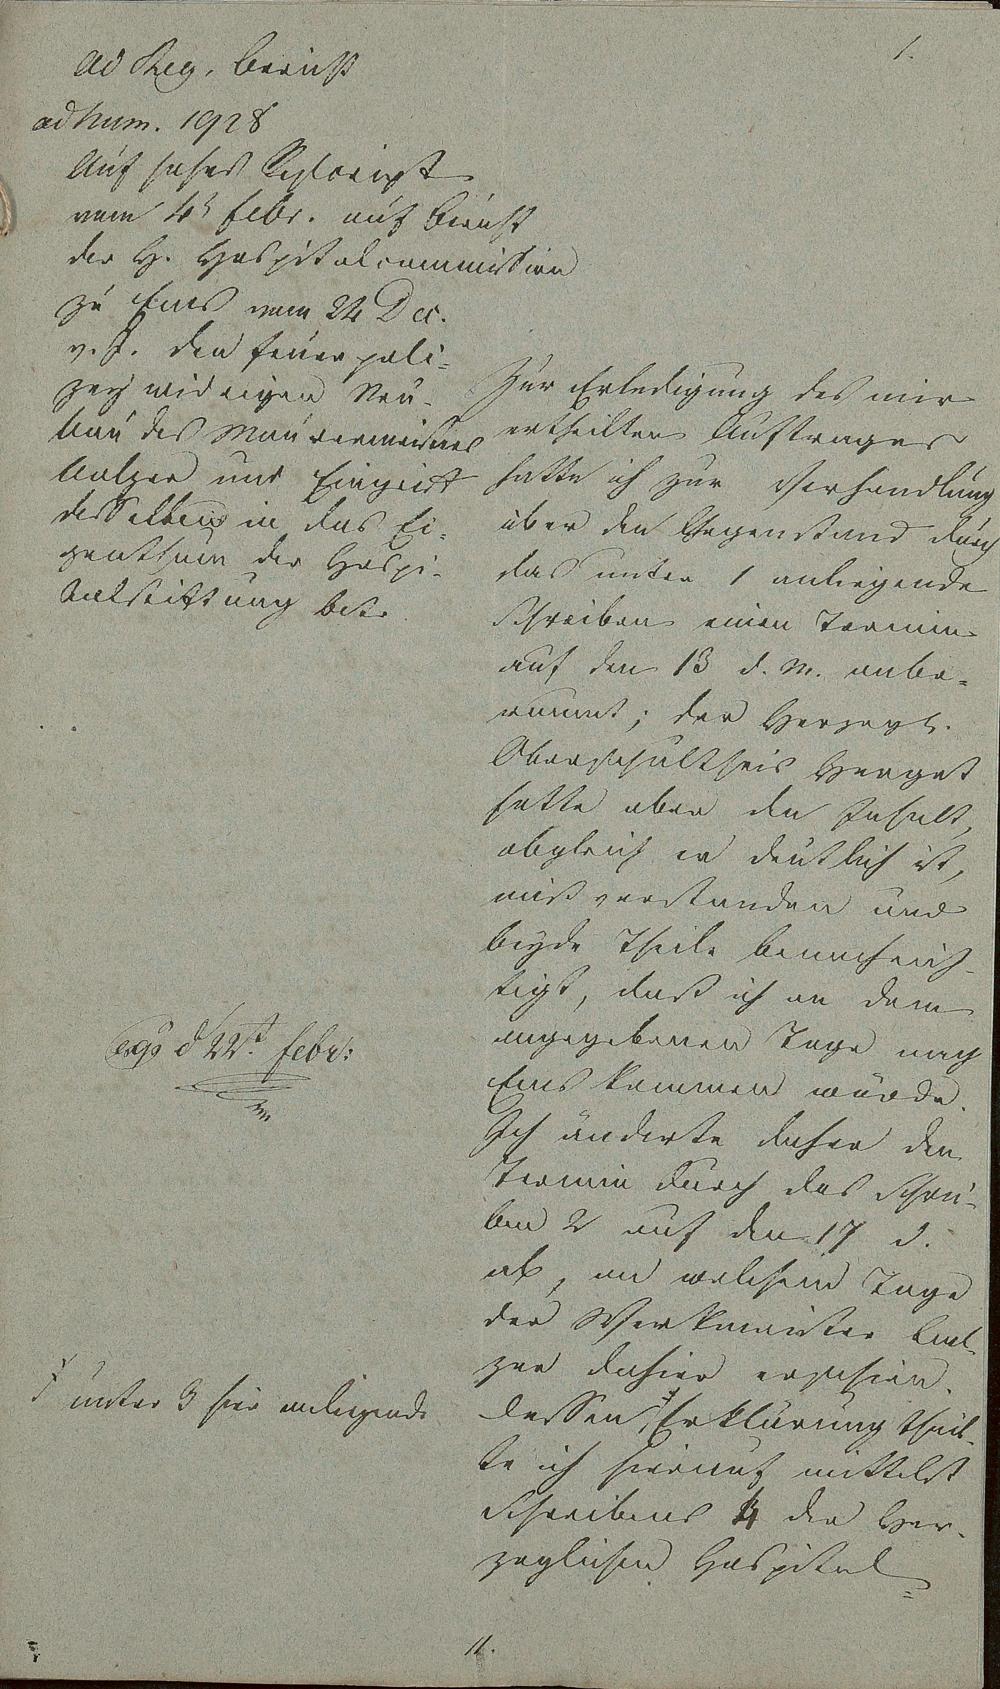 1.
ad Reg. Bericht
ad Num. 1928
Auf hohes Rescript
vom 4t Febr. auf Bericht
der H. Hospitalcommission
zu Ems vom 24 Dec.
v. J. den feuerpoli=
zey widrigen Neu-
bau des Maurermeisters
Balzer und Eingriff
desselben in das Ei-
genthum der Hospi-
talstiftung betr.
Zur Erledigung des mir
ertheilten Auftrages
hatte ich zur Verhandlung
über den Gegenstand durch
das unter 1 anliegende
Schreiben einen Termin
auf den 13 d. M. anbe=
raumt; der Herzogl.
Oberschultheis Herget
hatte aber den Inhalt,
obgleich er deutlich ist,
mißverstanden und
beyde Theile benachrich-
tigt, daß ich an dem
angegebenen Tage nach
Ems kommen würde.
Ich änderte daher den
Termin durch das Schrei-
ben 2 auf den 17 d.
ab, an welchem Tage
der Werkmeister Bal-
zer dahier erschien.
Dessen Erklärung theil-
te ich hierauf mittelst
Schreibens 4 der Her-
zoglichen Hospital=
exp d 22st. Febr:
unter 3 hier anliegende
11.